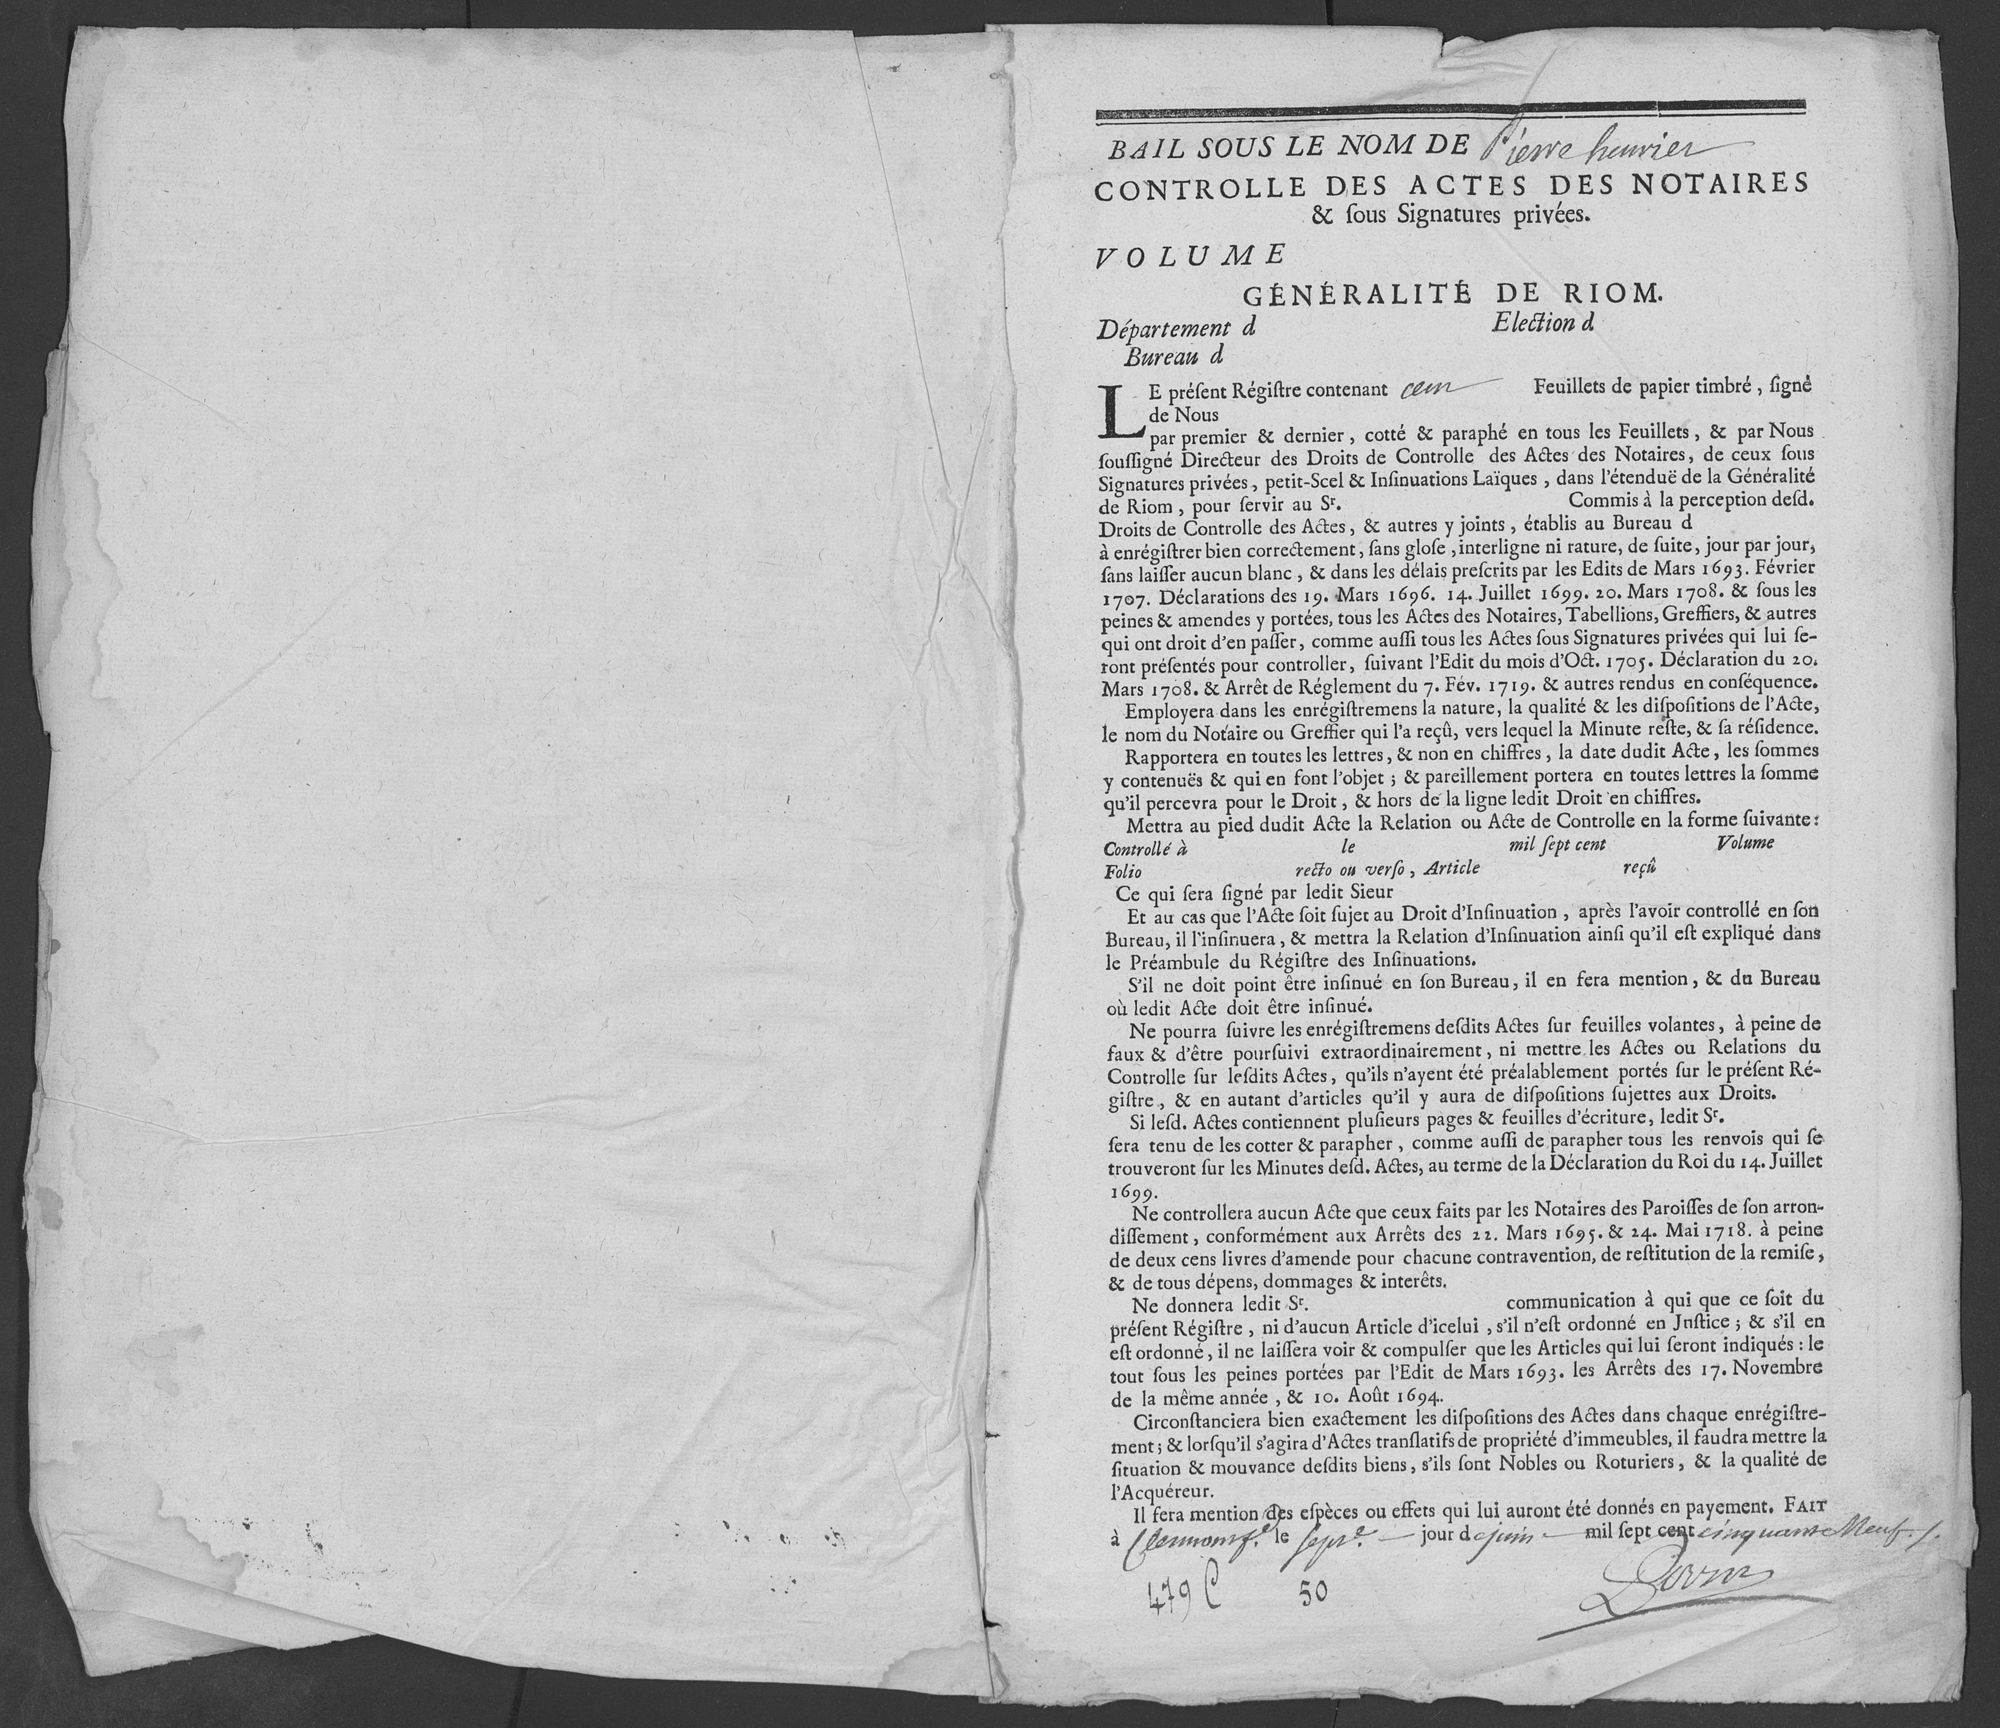 BAIL SOUS LE NOM DE Pierre henrier
CONTROLLE DES ACTES DES NOTAIRES
& ſous Signatures privées.
VOLUME
GÉNÉRALITÉ DE RIOM.
Département d Election d
Bureau d
LE préſent Régiſtre contenant cent Feuillets de papier timbré, ſigné
de Nous
par premier & dernier, cotté & paraphé en tous les Feuillets, & par Nous
ſouſſigné Directeur des Droits de Controlle des Actes des Notaires, de ceux ſous
Signatures privées, petit-Scel & Inſinuations Laïques, dans l'étenduë de la Généralité
de Riom, pour ſervir au Sr. Commis à la perception deſd.
Droits de Controlle des Actes, & autres y joints, établis au Bureau d
à enrégiſtrer bien correctement, ſans gloſe, interligne ni rature, de ſuite, jour par jour,
ſans laiſſer aucun blanc, & dans les délais preſcrits par les Edits de Mars 1693. Février
1707. Déclarations des 19. Mars 1696. 14. Juillet 1699. 20. Mars 1708. & ſous les
peines & amendes y portées, tous les Actes des Notaires, Tabellions, Greffiers, & autres
qui ont droit d'en paſſer, comme auſſi tous les Actes ſous Signatures privées qui lui ſe-
ront préſentés pour controller, ſuivant l'Edit du mois d'Oct. 1705. Déclaration du 20.
Mars 1708. & Arrêt de Réglement du 7. Fév. 1719. & autres rendus en conſéquence.
Employera dans les enrégiſtremens la nature, la qualité & les diſpoſitions de l'Acte,
le nom du Notaire ou Greffier qui l'a reçû, vers lequel la Minute reſte, & ſa réſidence.
Rapportera en toutes les lettres, & non en chiffres, la date dudit Acte, les ſommes
y contenuës & qui en font l'objet; & pareillement portera en toutes lettres la ſomme
qu'il percevra pour le Droit, & hors de la ligne ledit Droit en chiffres.
Mettra au pied dudit Acte la Relation ou Acte de Controlle en la forme ſuivante:
Controllé à le mil ſept cent Volume
Folio recto ou verſo, Article reçû
Ce qui ſera ſigné par ledit Sieur
Et au cas que l'Acte ſoit ſujet au Droit d'Inſinuation, après l'avoir controllé en ſon
Bureau, il l'inſinuera, & mettra la Relation d'Inſinuation ainſi qu'il eſt expliqué dans
le Préambule du Régiſtre des Inſinuations.
S'il ne doit point être inſinué en ſon Bureau, il en fera mention, & du Bureau
où ledit Acte doit être inſinué.
Ne pourra ſuivre les enrégiſtremens deſdits Actes ſur feuilles volantes, à peine de
faux & d'être pourſuivi extraordinairement, ni mettre les Actes ou Relations du
Controlle ſur leſdits Actes, qu'ils n'ayent été préalablement portés ſur le préſent Ré-
giſtre, & en autant d'articles qu'il y aura de diſpoſitions ſujettes aux Droits.
Si leſd. Actes contiennent pluſieurs pages & feuilles d'écriture, ledit Sr.
ſera tenu de les cotter & parapher, comme auſſi de parapher tous les renvois qui ſe
trouveront ſur les Minutes deſd. Actes, au terme de la Déclaration du Roi du 14. Juillet
1699.
Ne controllera aucun Acte que ceux faits par les Notaires des Paroiſſes de ſon arron-
diſſement, conformément aux Arrêts des 22. Mars 1695. & 24. Mai 1718. à peine
de deux cens livres d'amende pour chacune contravention, de reſtitution de la remiſe,
& de tous dépens, dommages & interêts.
Ne donnera ledit Sr. communication à qui que ce ſoit du
préſent Régiſtre, ni d'aucun Article d'icelui, s'il n'eſt ordonné en Juſtice; & s'il en
eſt ordonné, il ne laiſſera voir & compulſer que les Articles qui lui ſeront indiqués: le
tout ſous les peines portées par l'Edit de Mars 1693. les Arrêts des 17. Novembre
de la même année, & 10. Août 1694.
Circonſtanciera bien exactement les diſpoſitions des Actes dans chaque enrégiſtre-
ment; & lorſqu'il s'agira d'Actes tranſlatifs de propriété d'immeubles, il faudra mettre la
ſituation & mouvance deſdits biens, s'ils ſont Nobles ou Roturiers, & la qualité de
l'Acquéreur.
Il fera mention des eſpèces ou effets qui lui auront été donnés en payement. FAIT
à Clermont le sept jour de juin mil ſept cent cinquante Neuf
479 C 50